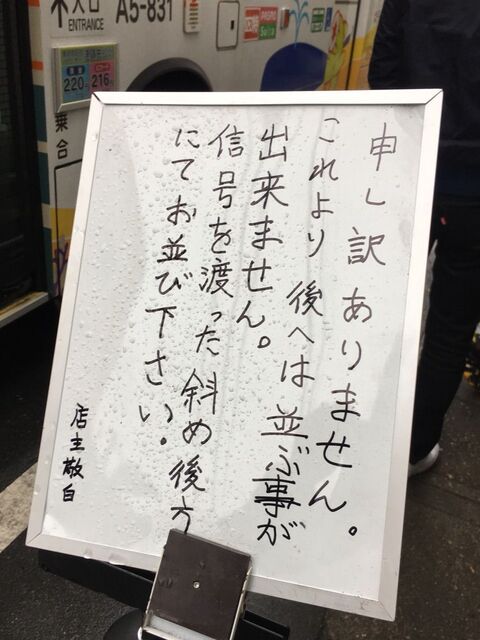 入口
ENTRANCE
A5-831
PASMO
Suica
220
216
乗合
申し訳ありません。
これより後へは並ぶ事が
出来ません。
信号を渡った斜め後方
にてお並び下さい。
店主敬白